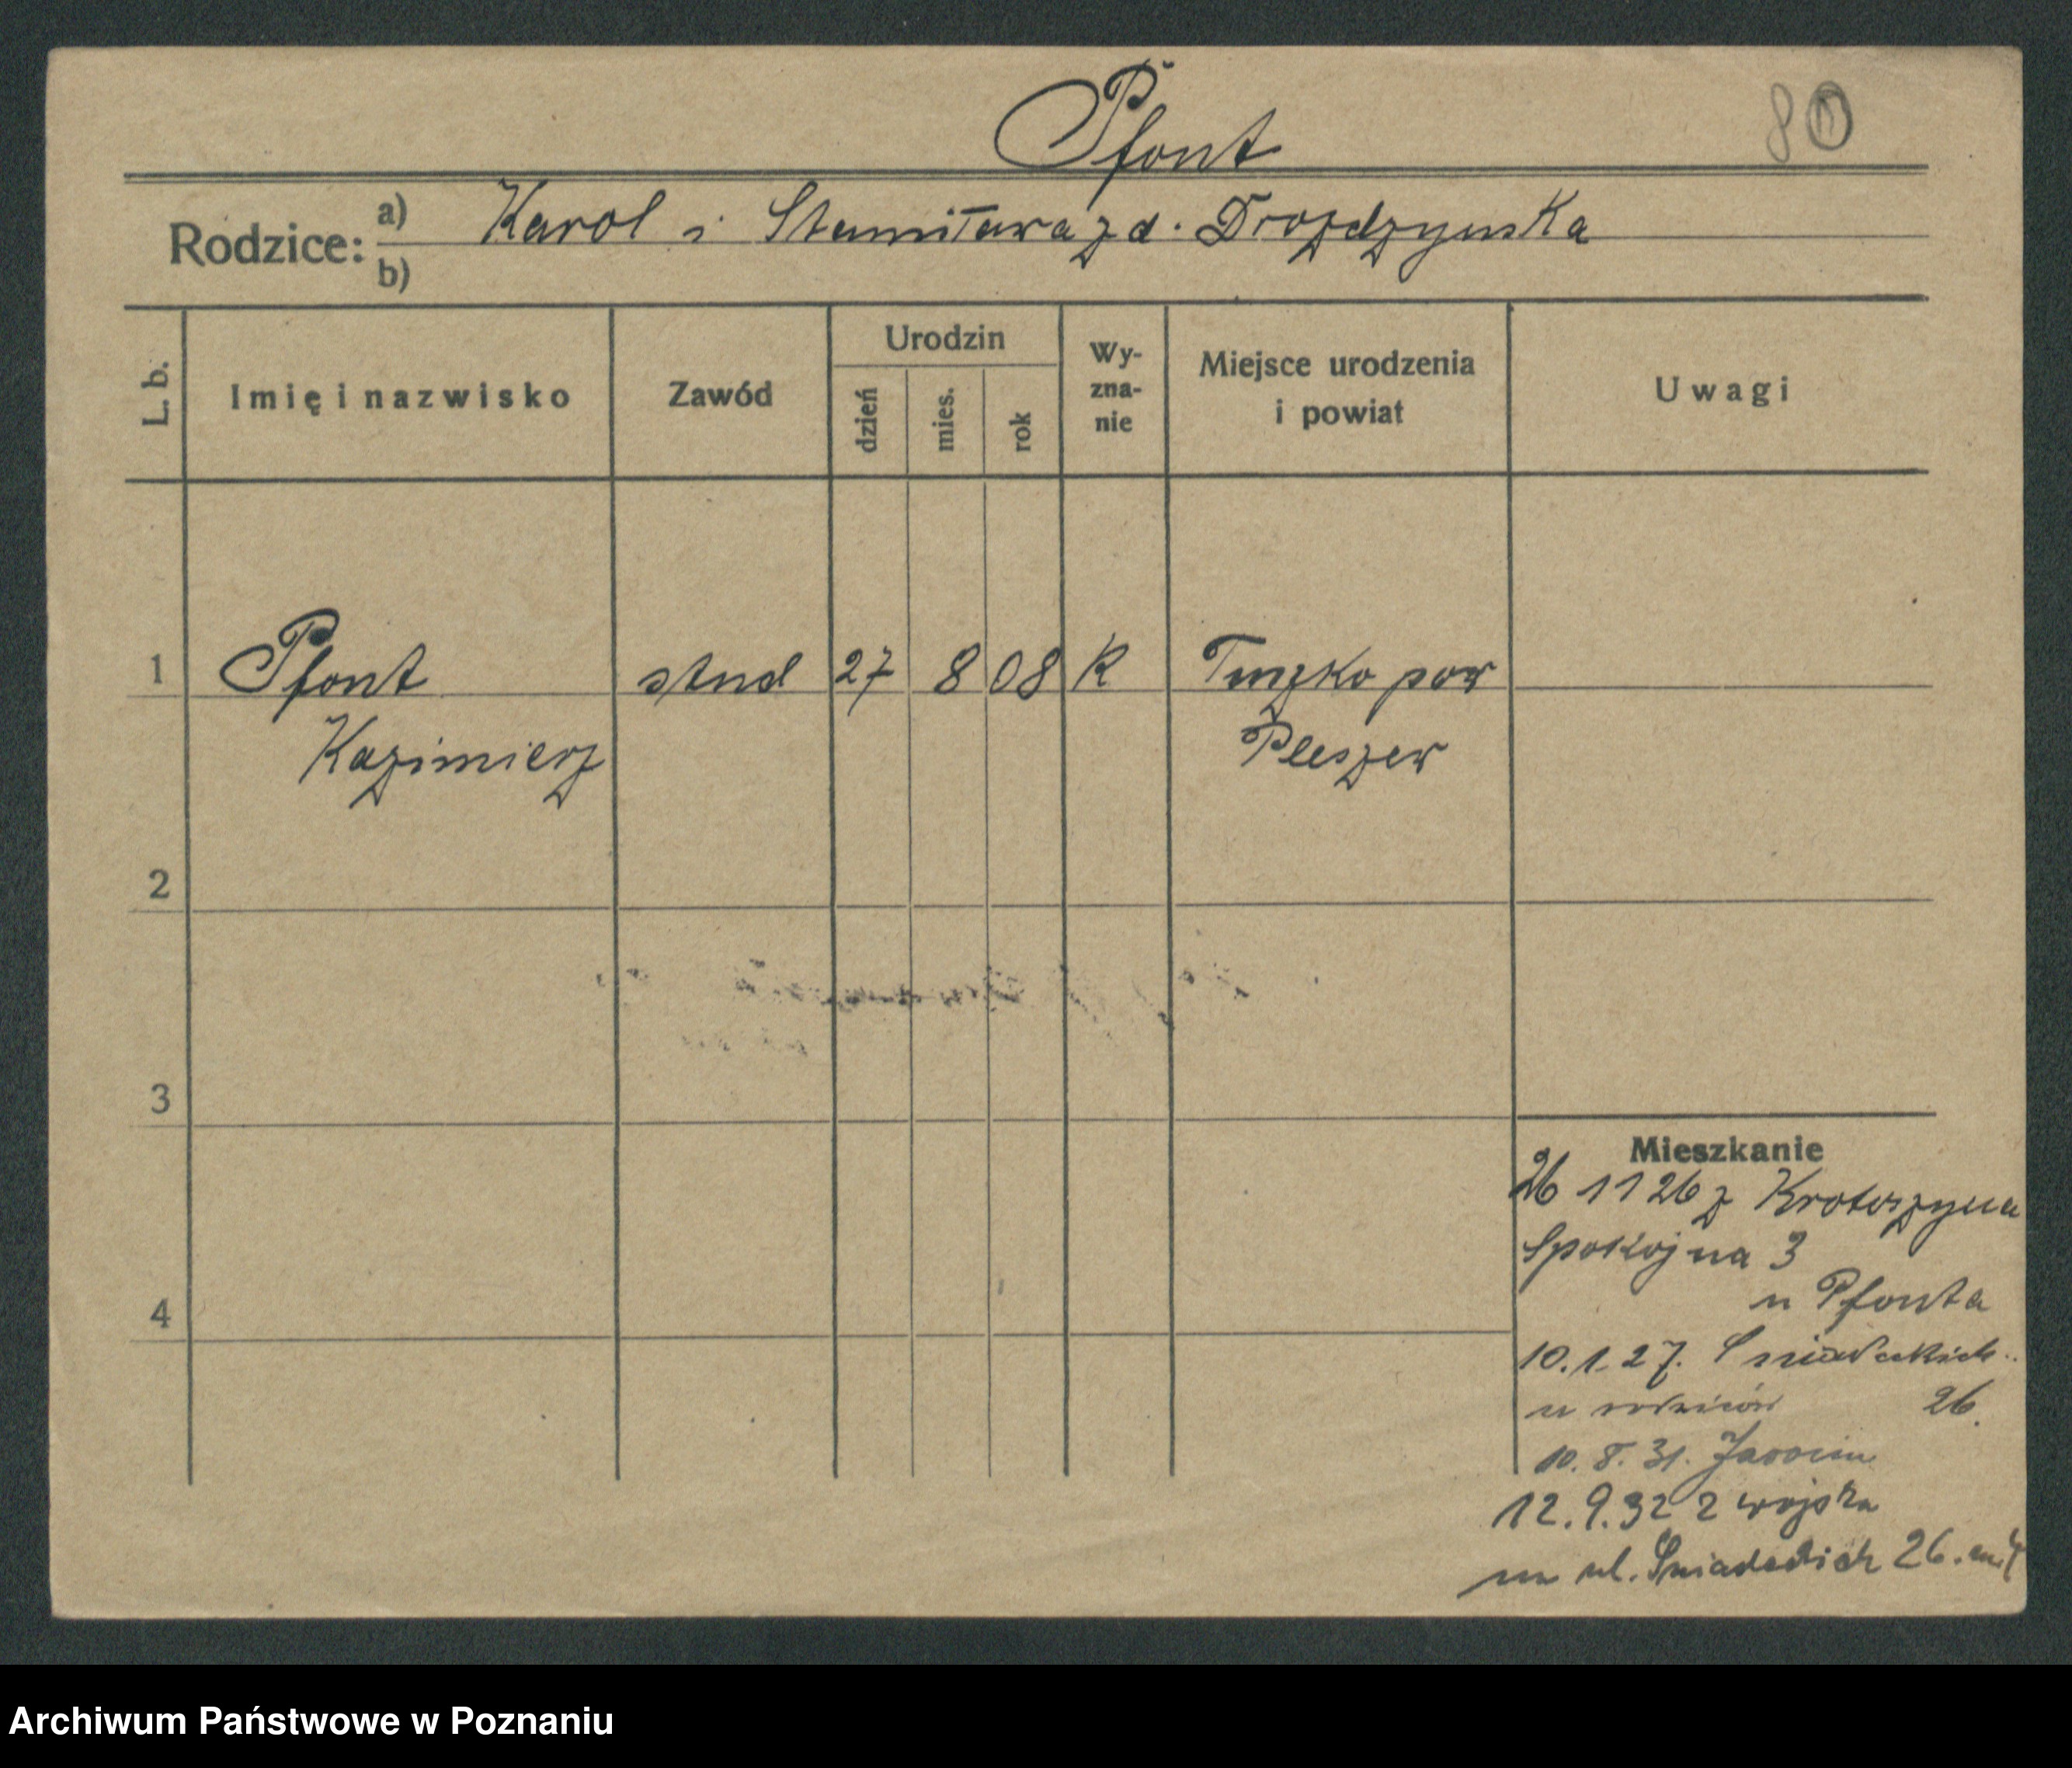 Pfont
80
Rodzice: a) Karol i Stanisława z d. Drozdzynska
b)
L. b.
Imię i nazwisko
Zawód
Urodzin
dzień
mies.
rok
Wy-
zna-
nie
Miejsce urodzenia
i powiat
Uwagi
1 Pfont stud 27 8 08 R pow
Kazimierz Pleszew
2
3
4
Mieszkanie
26 11 26 z Krotoszyna
Spokojna 3
u Pfonta
10.1.27. Sniadeckich
u rodziców 26.
10. 8. 31. Jarocin
12.9.32 z wojska
na ul. Sniadeckich 26. m. 4
Archiwum Państwowe w Poznaniu